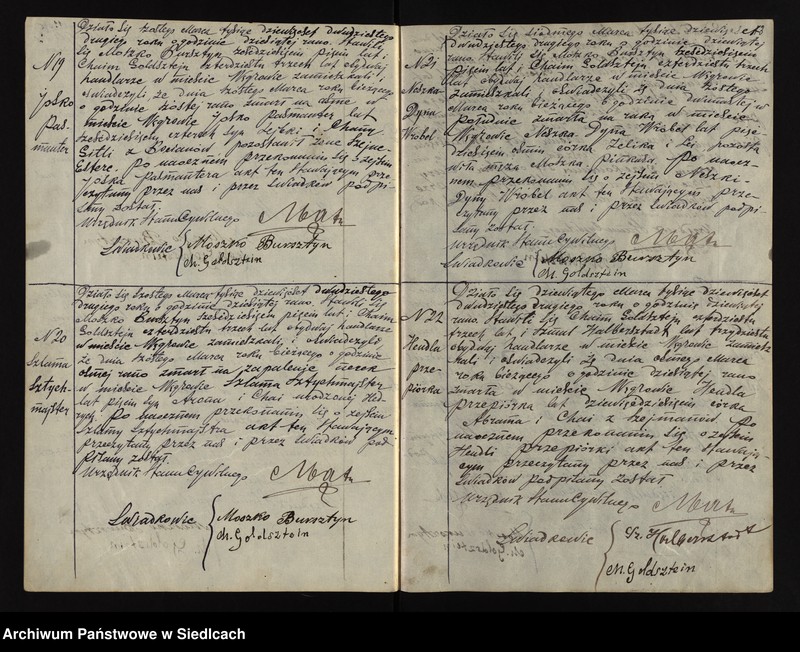 N19
Josko
Pas-
manter
Działo się szóstego Marca tysiąc dziewięćset dwudziestego
drugiego roku o godzinie dziesiątej rano. Stawili
się Moszko Bursztyn sześćdziesiąt pięciu lat i
Chaim Goldsztejn czterdziestu trzech lat obydwaj
handlarze w mieście Węgrowie zamieszkali i
oświadczyli, że dnia szóstego Marca roku bieżącego
o godzinie szóstej rano zmarł na
mieście Węgrowie Josko Pasmanter lat
sześćdziesięciu czterech syn Lejbki i Chany
Gitli z pozostawił żonę
Esterę. Po naocznem przekonaniu się o zejściu
Joska Pasmantera akt ten stawającym prze-
czytany przez nas i przez świadków podpi-
sany został.
Urzędnik Stanu Cywilnego
Świadkowie
Moszko Bursztyn
Ch. Goldsztein
N20
Szlama
Sztych-
majster
Działo się szóstego Marca tysiąc dziewięćset dwudziestego
drugiego roku o godzinie dziesiątej rano. Stawili się
Moszko Bursztyn sześćdziesiąt pięciu lat i Chaim
Goldsztejn czterdziestu trzech lat obydwaj handlarze
w mieście Węgrowie zamieszkali i oświadczyli
że dnia szóstego Marca roku bieżącego o godzinie
ósmej rano zmarł na zapalenie nerek
w mieście Węgrowie Szlama Sztychmajster
syn Arona i Chai urodzony
Po naocznem przekonaniu się o zejściu
Szlamy Sztychmajstra akt ten stawającym
przeczytany przez nas i przez świadków pod-
pisany został
Urzędnik Stanu Cywilnego
Świadkowie
Moszko Bursztyn
Ch. Goldsztein
N21
Noszka
Dyna
Wróbel
Działo się siódmego Marca tysiąc dziewięćset
dwudziestego drugiego roku o godzinie dziesiątej
rano. Stawili się Moszko Bursztyn sześćdziesiąt
pięciu lat i Chaim Goldsztejn czterdziestu trzech
lat obydwaj handlarze w mieście Węgrowie
zamieszkali i oświadczyli że dnia szóstego
Marca roku bieżącego o godzinie dwunastej w
południe zmarła na raka w mieście
Węgrowie Noszka Dyna Wróbel lat pięć-
dziesięciu ośmiu córka Zelika i
męża Moszka Po naocz-
nem przekonaniu się o zejściu Noszki-
Dyny Wróbel akt ten stawającym prze-
czytany przez nas i przez świadków podpi-
sany został
Urzędnik Stanu Cywilnego
Świadkowie
Moszko Bursztyn
Ch. Goldsztein
N22
Hendla
prze-
piórka
Działo się dziewiątego Marca tysiąc dziewięćset
dwudziestego drugiego roku o godzinie dziesiątej
rano stawili się Chaim Goldsztejn czterdziestu
trzech lat, i Szmul Halbersztadt lat trzydziestu
obydwaj handlarze w mieście Węgrowie zamiesz-
kali i oświadczyli że dnia ósmego Marca
roku bieżącego o godzinie dziesiątej rano
zmarła w mieście Węgrowie Hendla
przepiórka lat dziewięćdziesięciu córka
Abrama i Chai z Po
naocznem przekonaniu się o zejściu
Hendli przepiórki akt ten stawają-
cym przeczytany przez nas i przez
świadków podpisany został
Urzędnik Stanu Cywilnego
Świadkowie
Sz. Halbersztadt
Ch. Goldsztein
Archiwum Państwowe w Siedlcach